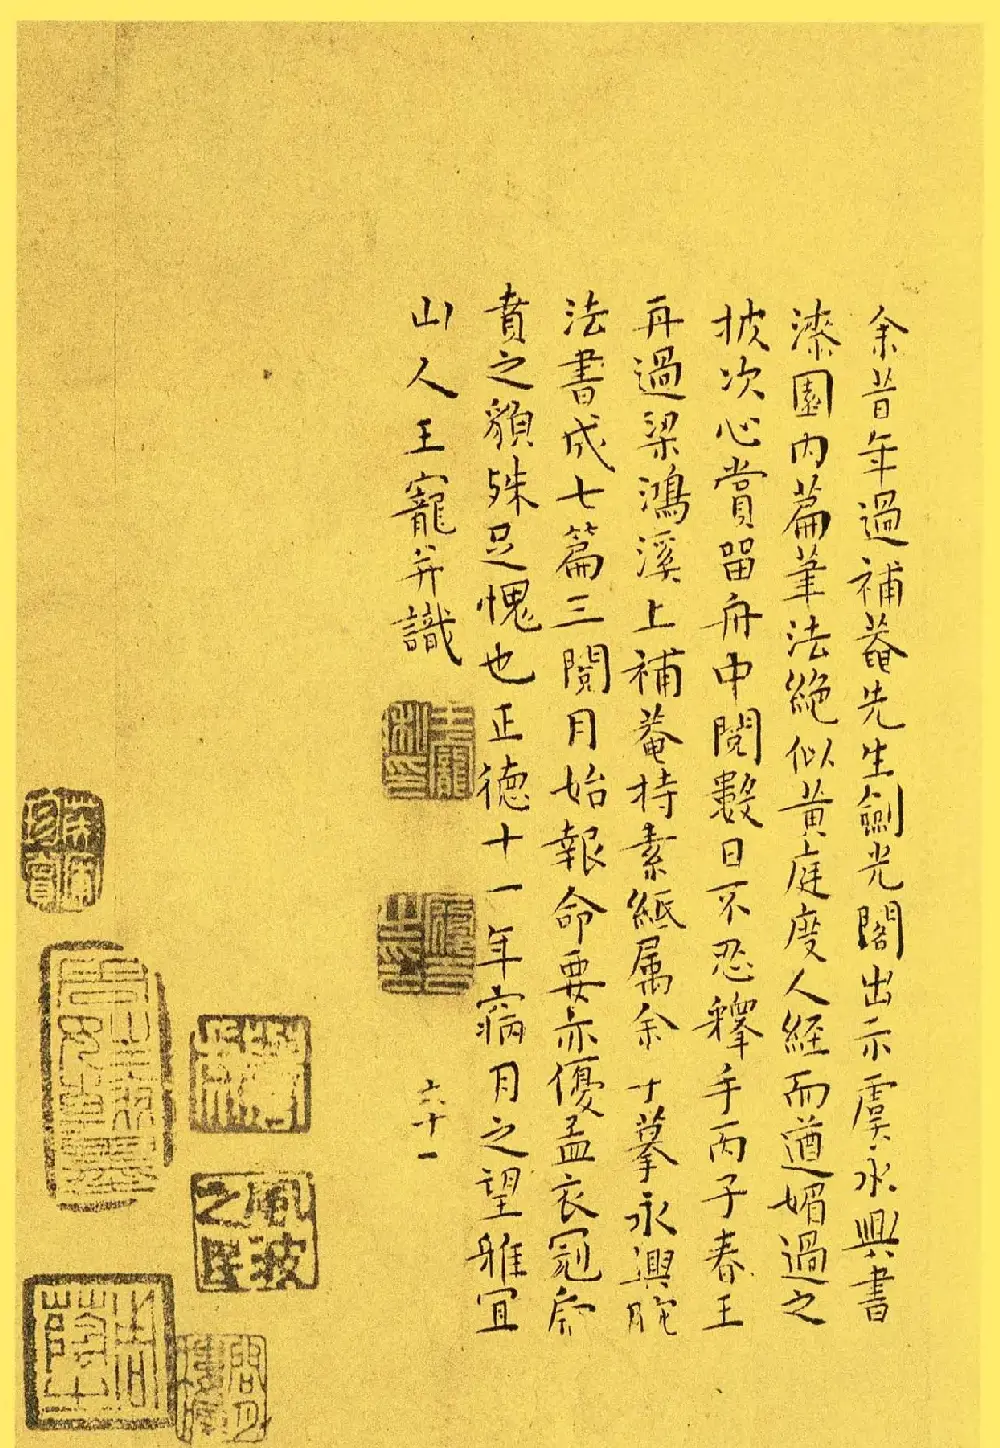 余昔年過補菴先生劍光閣出示虞永興書
漆園内篇筆法絶似黄庭度人經而遒媚過之
披次心賞留舟中閲數日不忍釋手丙子春王
再過梁鴻溪上補菴持素紙属余寸摹永興
法書成七篇三閲月始報命要亦優孟衣冠
賁之貌殊足愧也正德十一年㝱月之望雅宜
山人王寵并識
六十一
王寵私印
風波之民